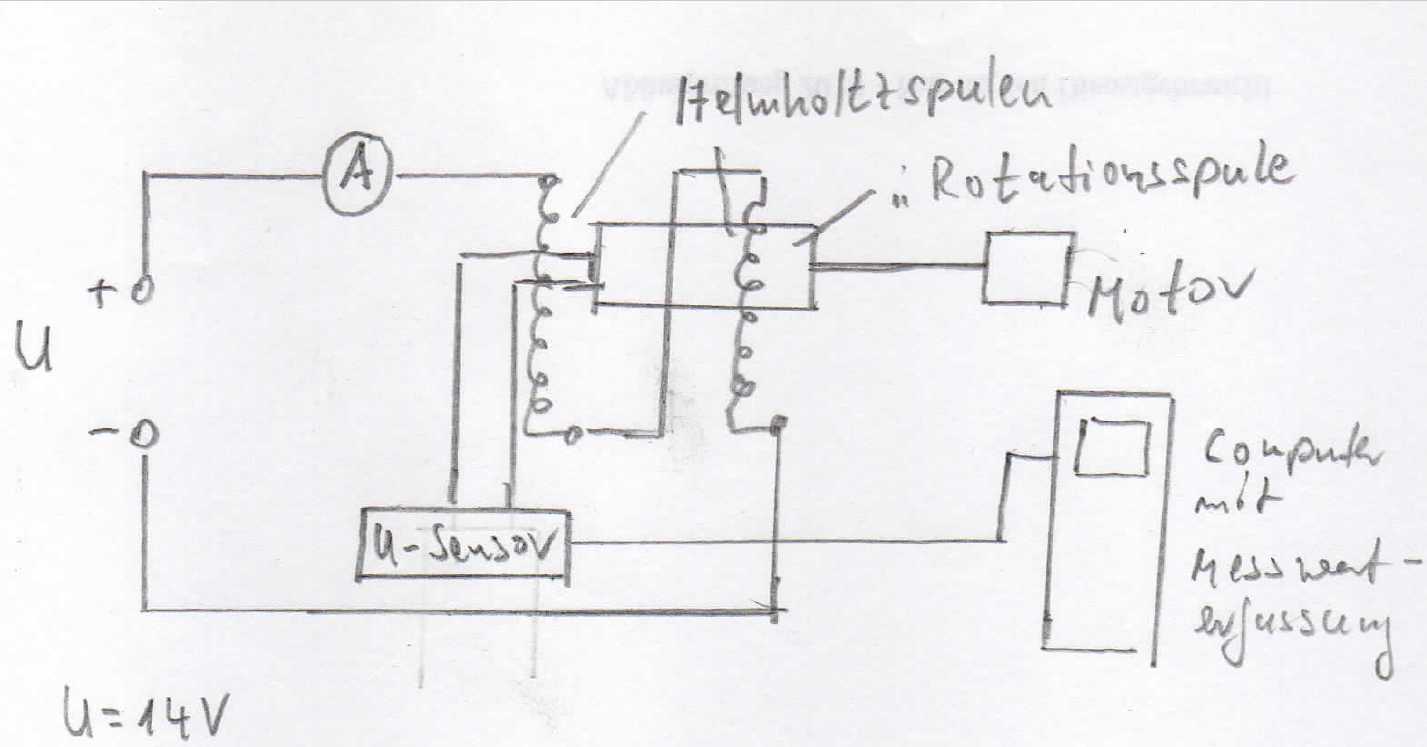 Helmholtzspulen
A
Rotationsspule
+
Motor
U
-
Computer
mit
U-Sensor
Messwert-
erfassung
U=14V